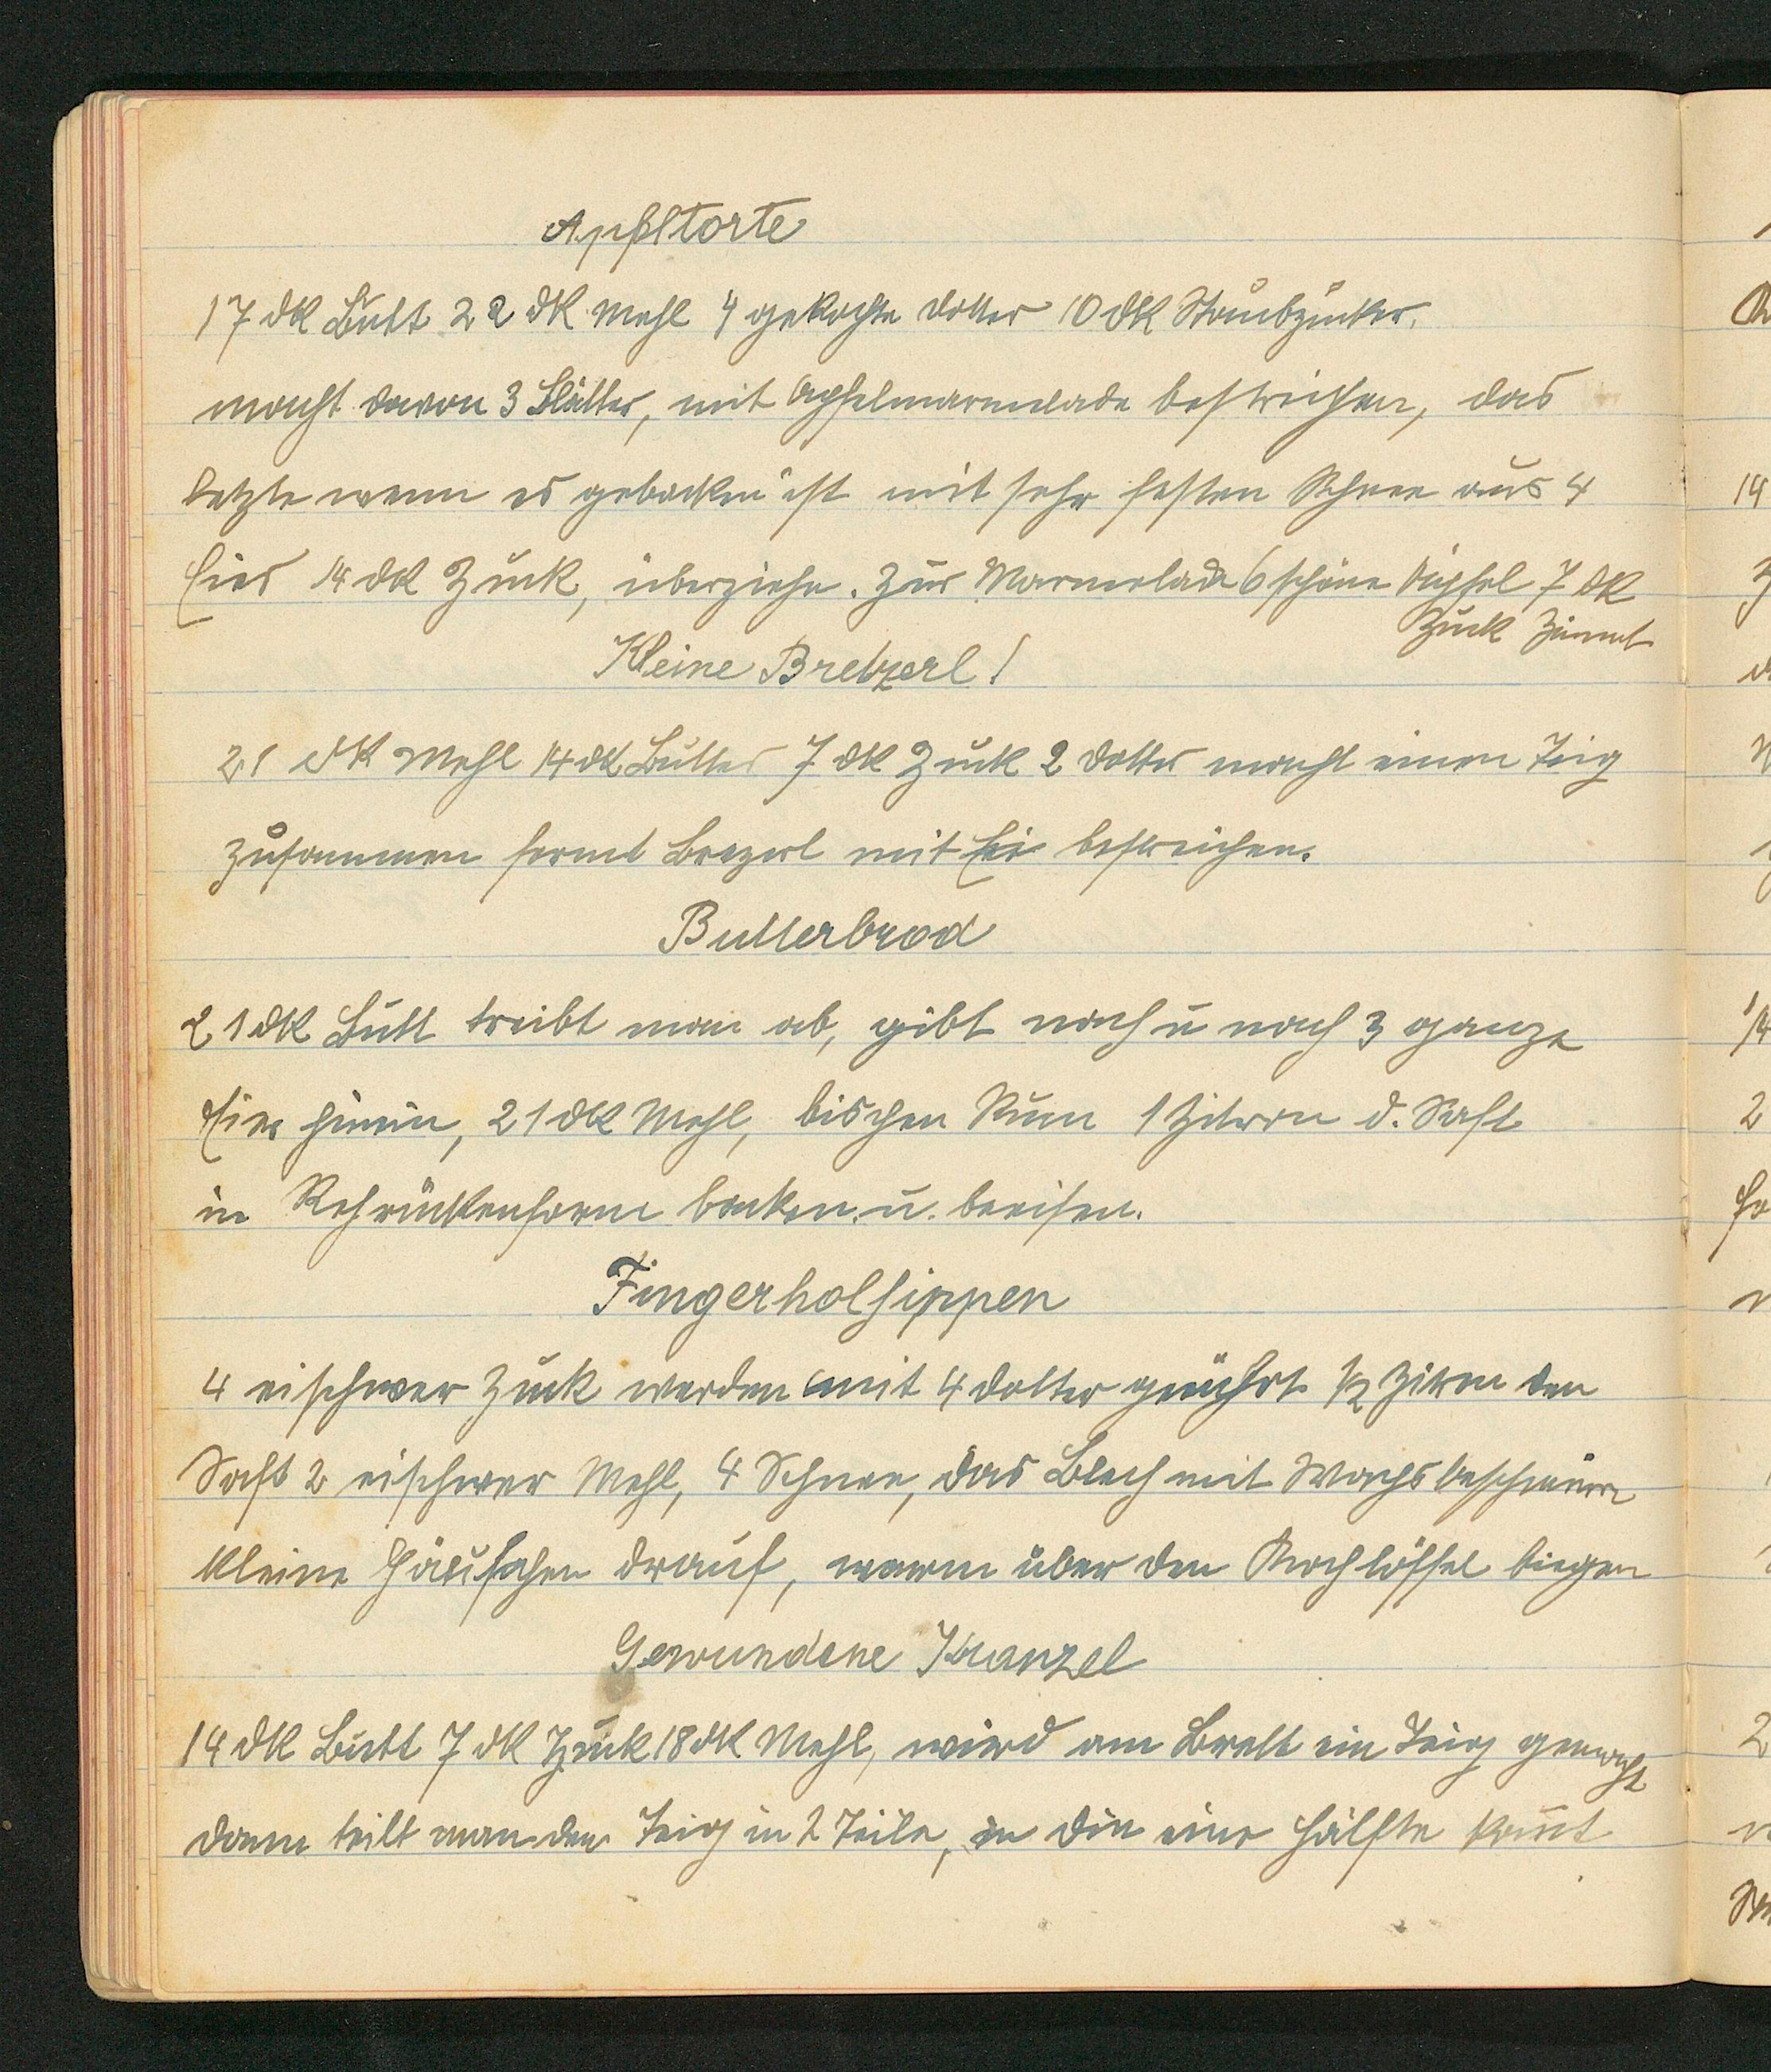 Apfltorte
17 dk Butt 22 dk Mehl 4 gekochte Dotter 10 dk Staubzucker.
macht davon 3 Blätter, mit Apfelmarmelade bestreichen, das
letzte wenn es gebacken ist mit sehr festen Schnee aus 4
Eier 14 dk Zuck, überziehe. Zur Marmelade 6 schöne Äpfel 7 dk
Zuck Zimmt
Kleine Bretzerl!
21 dk Mehl 14 dk Butter 7 dk Zuck 2 Dotter macht einen Teig
zusammen formt Brezerl mit Ei bestreichen.
Butterbrod
21 dk Butt treibt man ab, gibt nach u nach 3 ganze
Eier hinein, 21 dk Mehl, bischen Rum 1 Zitron d. Saft
in Rehrückenform backen. u. beeisen.
Fingerholhippen
4 eischwer Zuck werden mit 4 Dotter gerührt 1/2 Zitron den
Saft 2 eischwer Mehl, 4 Schnee, das Blech mit Wachs beschmiern
kleine Häufchen drauf, warm über den Kochlöffel biegen
Gewundene Kranzel
14 dk Butt 7 dk Zuck 18 dk Mehl, wird am Brett ein Teig gemacht
dann teilt man den Teig in 2 Teile, in die eine Hälfte kom̄t